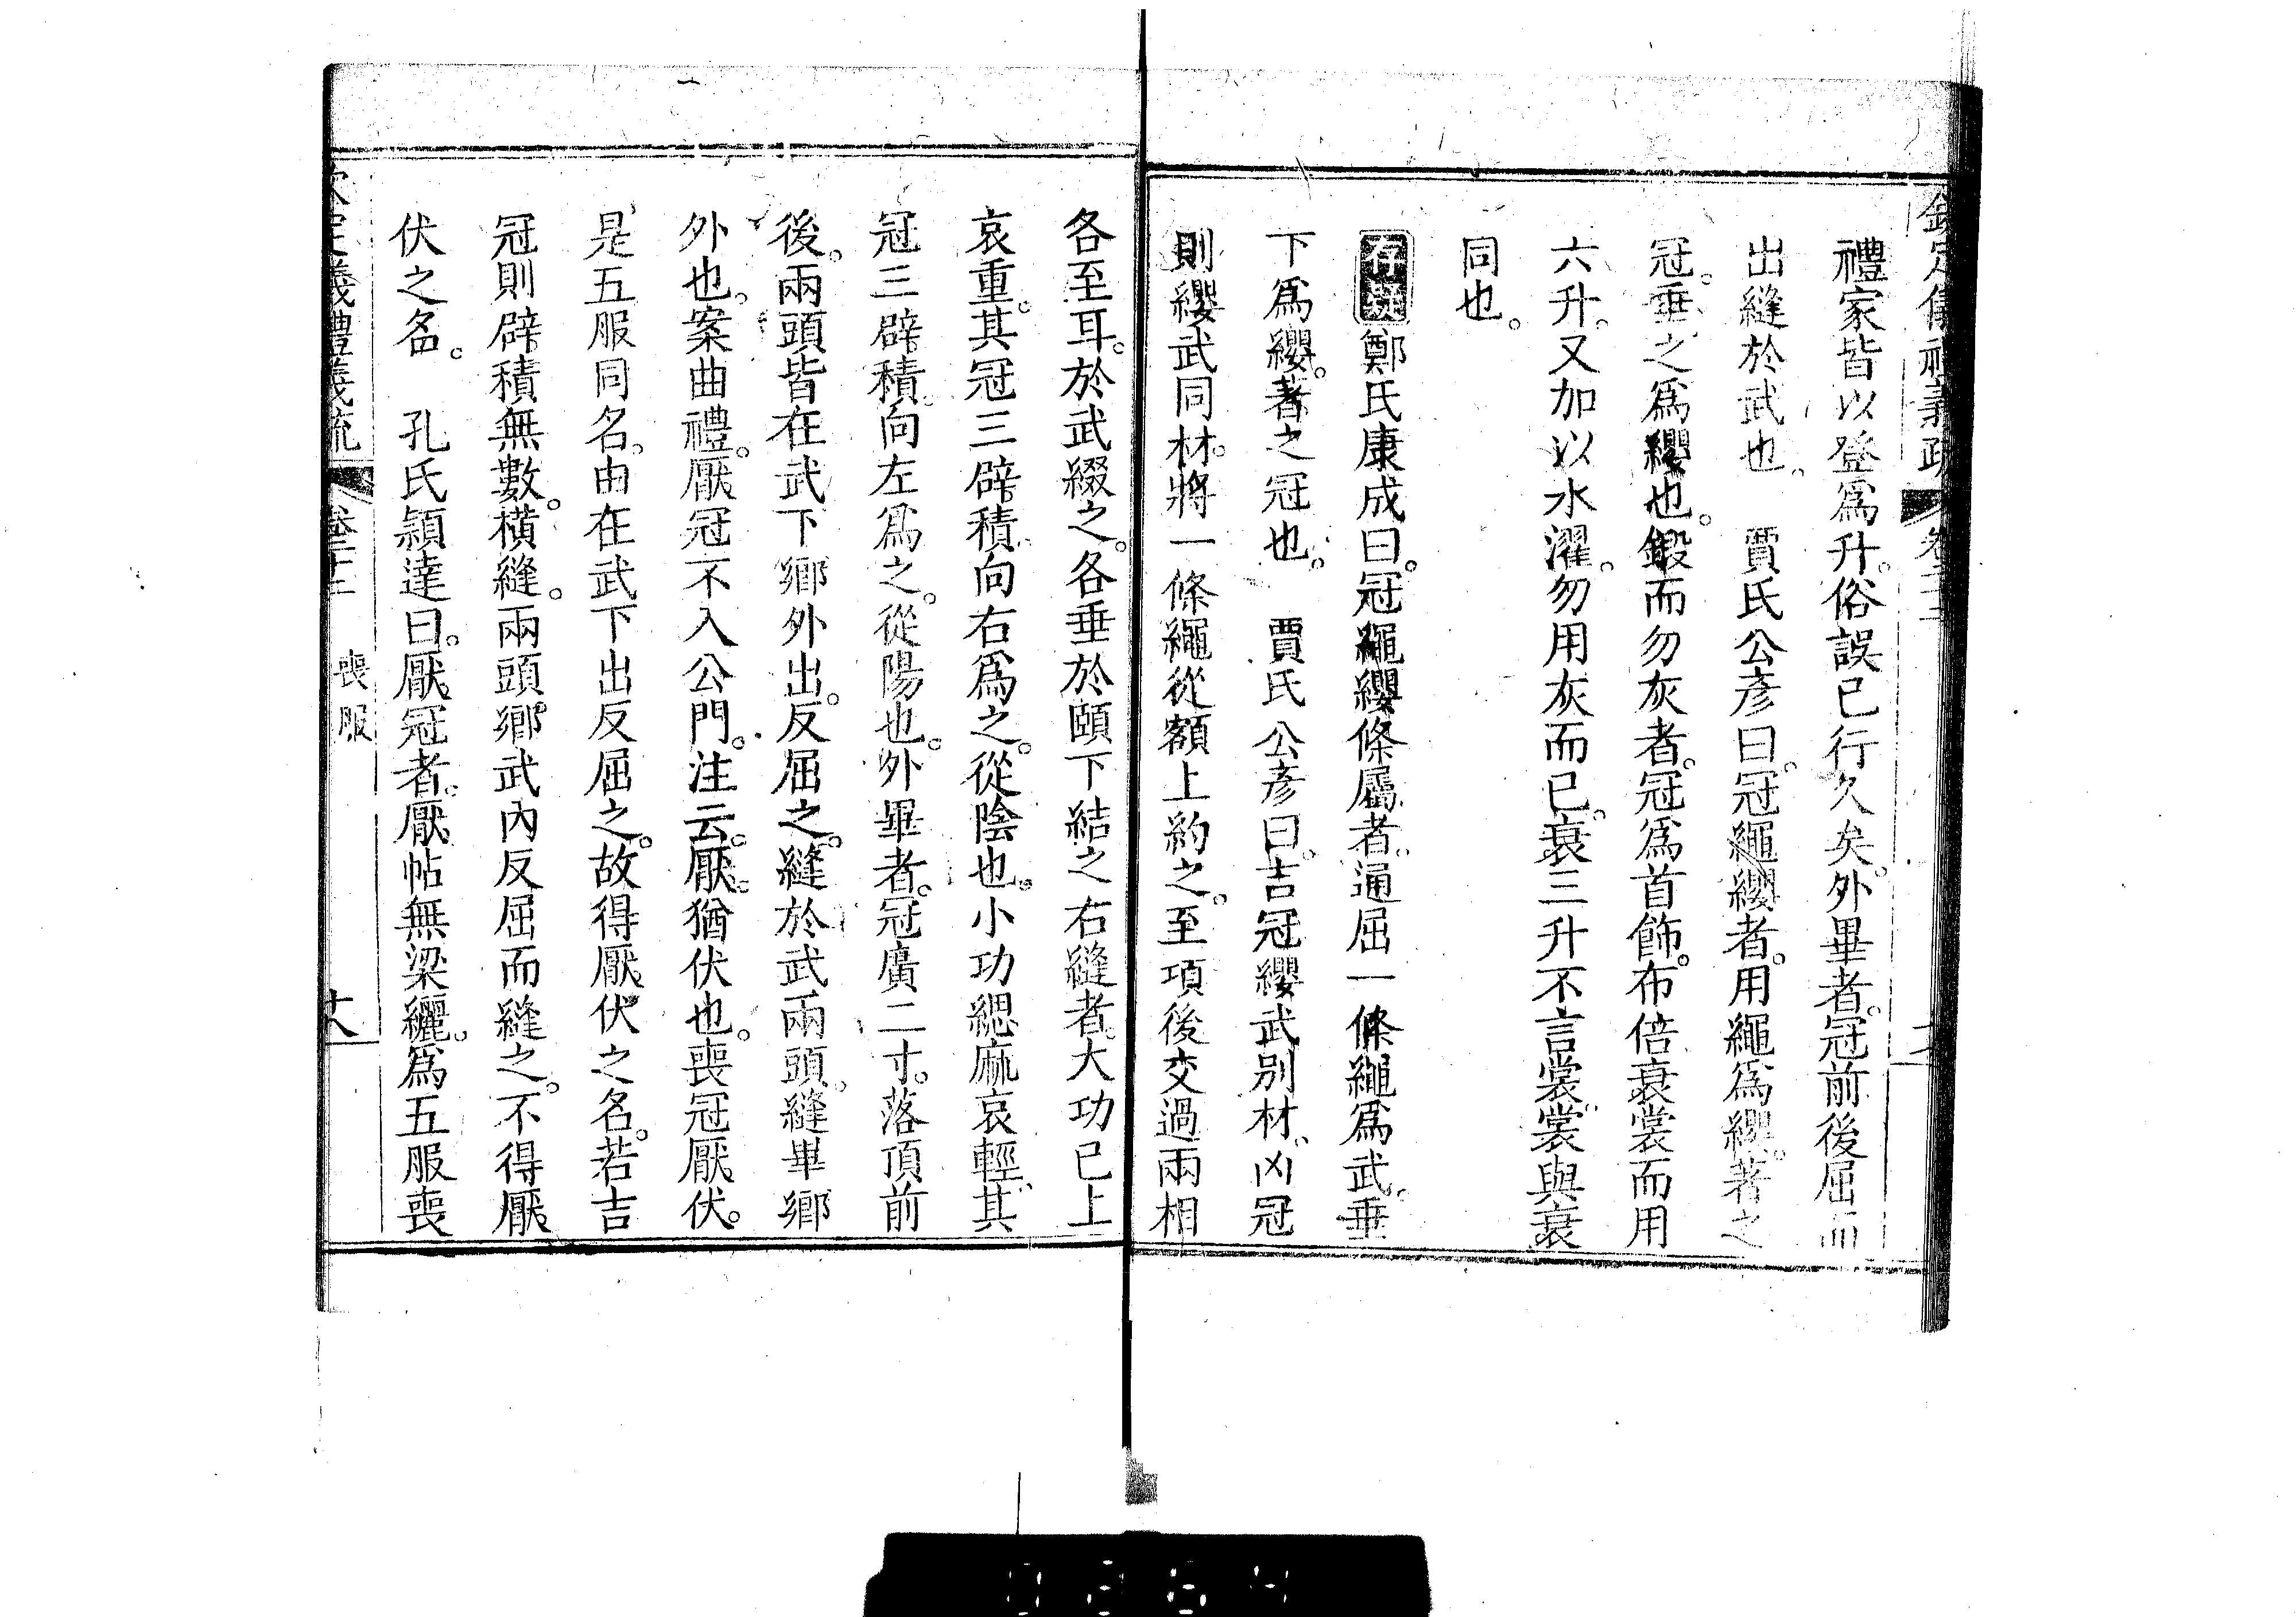 欽定儀禮義疏 卷二十二
禮家皆以登爲升。俗誤已行久矣。外畢者。冠前後屈而
出縫於武也。 賈氏公彥曰。冠繩纓者。用繩爲纓。著之
冠。垂之爲纓也。鍛而勿灰者。冠爲首飾。布倍衰裳而用
六升。又加以水濯。勿用灰而已。衰三升不言裳。裳與衰
同也。
存疑鄭氏康成曰。冠繩纓條屬者。通屈一條繩爲武。垂
下爲纓。著之冠也。 賈氏公彥曰。吉冠纓武別材、凶冠
則纓武同材。將一條繩從額上約之。至項後交過兩相
各至耳。於武綴之。各垂於頤下結之右縫者。大功已上
哀重。其冠三辟積。向右爲之。從陰也。小功緦麻哀輕。其
冠三辟積。向左爲之。從陽也。外畢者。冠廣二寸。落頂前
後。兩頭皆在武下鄉外出。反屈之。縫於武兩頭。縫畢鄉
外也。案曲禮。厭冠不入公門。注云。厭。猶伏也。喪冠厭伏。
是五服同名。由在武下出反屈之。故得厭伏之名。若吉
冠則辟積無數。橫縫。兩頭鄉武內反屈而縫之。不得厭
伏之名。 孔氏穎達曰。厭冠者。厭帖無梁纚。爲五服喪
欽定儀禮義疏 卷二十二 喪服 十八